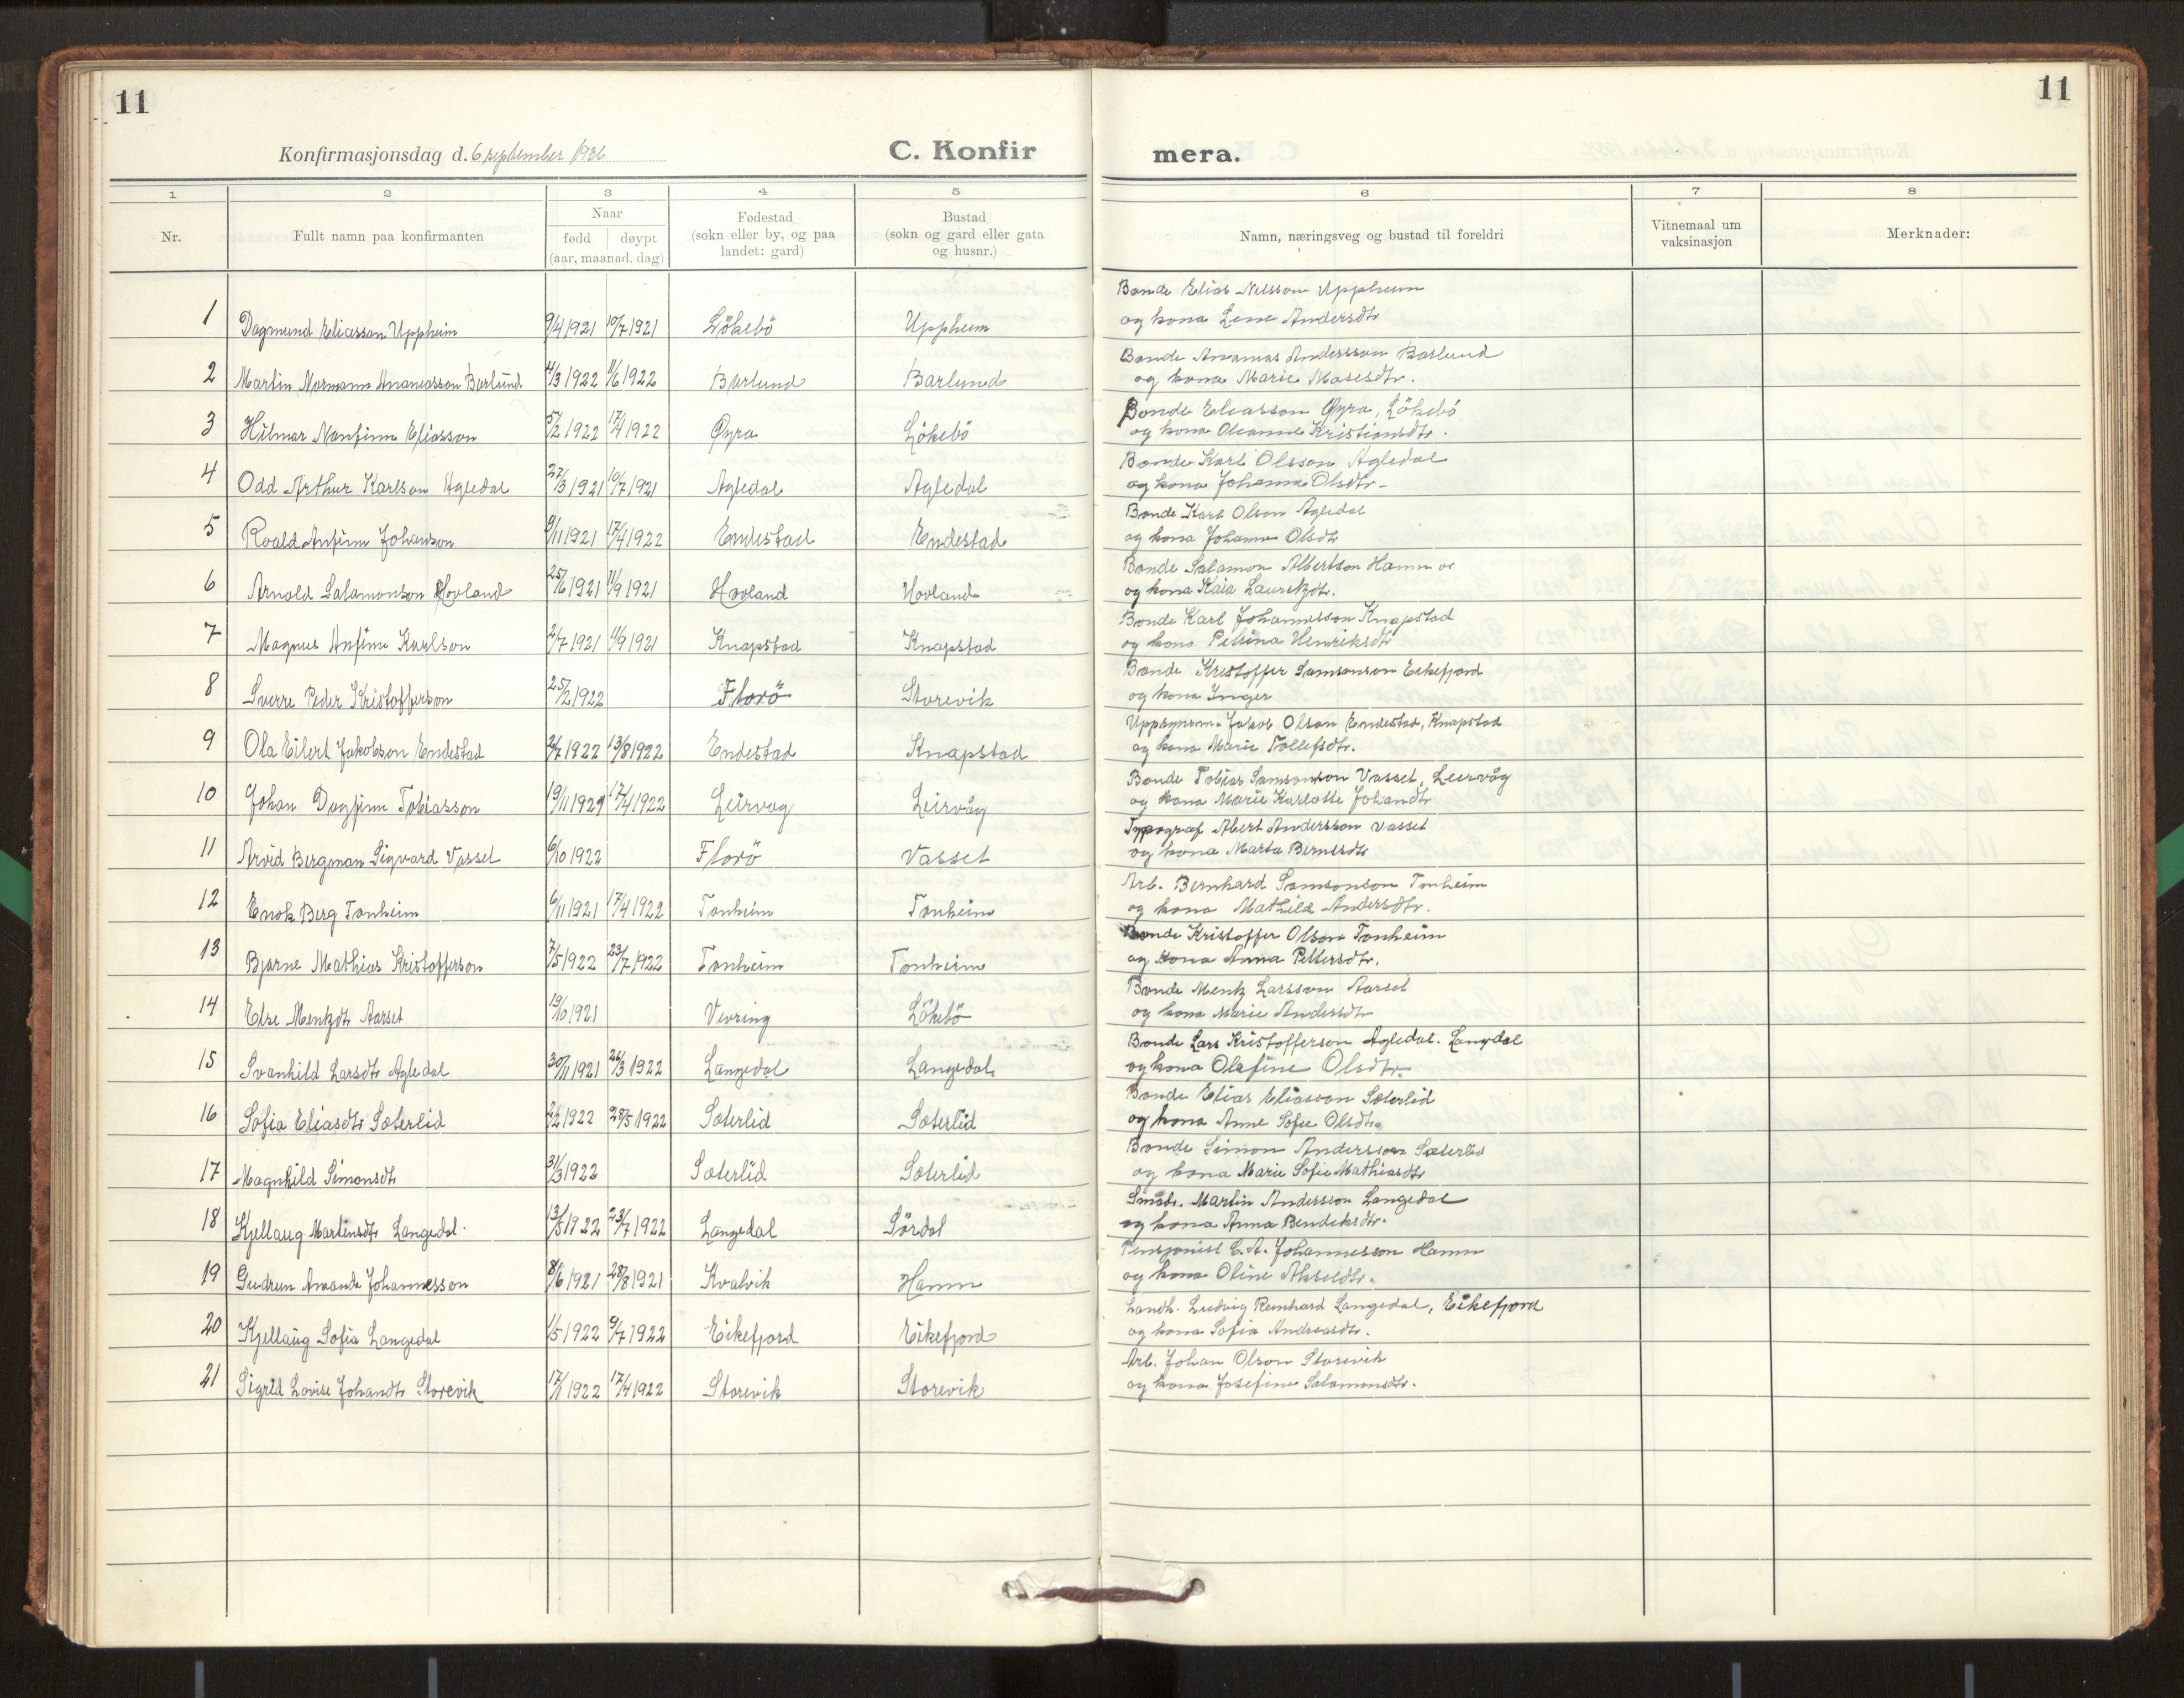 11
11
Konfirmasjonsdag d. 6 september 1936
C. Konfir
mera.
1 2 3 4 5 6 7 8
Nr.
Fullt namn paa konfirmanten
Naar
fødd døypt
(aar, maanad. dag)
Fødestad
(sokn eller by, og paa
landet: gard)
Bustad
(sokn og gard eller gata
og husnr.)
Namn, næringsveg og bustad til foreldri
Vitnemaal um
vaksinasjon
Merknader:
1 Dagmund Eliasson Uppheim 9/4 1921 10/7 1921 Lökebö Uppheim
Bonde Elias Nilsson Uppheim
og kona Lene Andersdtr
2 Martin Normann Ananiasson Barlund 4/3 1922 11/6 1922 Barlund Barlund
Bonde Ananias Andersson Barlund
og kona Marie Mosesdtr.
3 Hilmar Nanfinn Eliasson 5/2 1922 17/4 1922 Øyra Lökebö
Bonde Eliasson Øyra, Lökebö
og kona Oleanne Kristiansdtr.
4 Odd Arthur Karlson Agledal 27/3 1921 10/7 1921 Agledal Agledal
Bonde Karl Olsson Agledal
og kona Johanna Olsdtr.
5 Roald Anfinn Johanson 9/11 1921 17/4 1922 Endestad Endestad
Bonde Karl Olson Agledal
og kona Johanna Olsdtr
6 Arnold Salamonson Hovland 25/6 1921 11/9 1921 Hovland Hovland
Bonde Salamon Albertson Hamn
og kona Kaia Lauritzdtr.
7 Magnus Anfinn Karlson 2/7 1921 11/9 1921 Knapstad Knapstad
Bonde Karl Johannesson Knapstad
og kona Petrina Henriksdtr
8 Sverre Peder Kristofferson 25/2 1922 Florö Storevik
Bonde Kristoffer Samsonson Eikefjord
og kona Inger
9 Ola Eilert Jakobson Endestad 2/7 1922 13/8 1922 Endestad Knapstad
Uppsynsm. Jakob Olson Endestad, Knapstad
og kona Marie Tollefsdtr.
10 Johan Dagfinn Tobiasson 19/11 1921 17/4 1922 Leirvag Leirvåg
Bonde Tobias Samsonson Vasset, Leirvåg
og kona Marie Karlotte Johandtr
11 Arvid Bergman Sigvard Vasset 6/10 1922 Florö Vasset
Typograf Albert Andersson Vasset
og kona Marta Berntsdtr
12 Enok Berg Tonheim 6/11 1921 17/4 1922 Tonheim Tonheim
Arb. Bernhard Samsonson Tonheim
og kona Mathilda Andersdtr.
13 Bjarne Mathias Kristofferson 7/5 1922 23/7 1922 Tonheim Tonheim
Bonde Kristoffer Olson Tonheim
og kona Anna Pettersdtr.
14 Else Mentzdtr Aarset 19/10 1921 Vevring Lökebö
Bonde Mentz Larsson Aarset
og kona Marie Andersdtr
15 Svanhild Larsdtr Agledal 30/11 1921 26/3 1922 Langedal Langedal.
Bonde Lars Kristofferson Agledal. Langdal
og kona Olefine Olsdtr.
16 Sofia Eliasdtr Sæterlid 2/2 1922 28/5 1922 Sæterlid Sæterlid
Bonde Elias Eliasson Sæterlid
og kona Anne Sofie Olsdtr.
17 Magnhild Simonsdtr 31/3 1922 Sæterlid Sæterlid
Bonde Simon Andersson Sæterlid
og kona Marie Sofie Mathiasdtr
18 Kjellaug Martinsdtr Langedal. 13/5 1922 23/7 1922 Langedal Sördal
Småbr. Martin Andersson Langedal
og kona Anna Bendiksdtr.
19 Gudrun Amanda Johannesson 8/6 1921 28/8 1921 Kvalvik Hamn
Pensjonist C. A. Johannesson Hamn
og kona Oline Akseldtr.
20 Kjellaug Sofia Langedal 1/5 1922 9/7 1922 Eikefjord Eikefjord
Landh. Ludvig Reinhard Langedal, Eikefjord
og kona Sofia Andreasdtr.
21 Sigrid Lovise Johandtr Storevik 17/1 1922 17/4 1922 Storevik Storevik
Arb. Johan Olson Storevik
og kona Josefine Salamonsdtr.